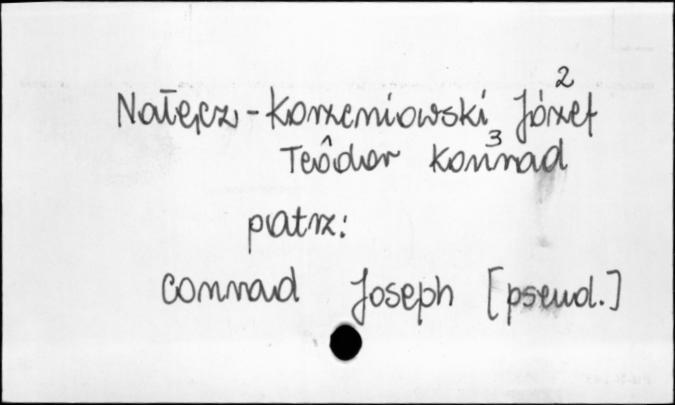 Nałęcz-Korzeniowski Józef 2
Teodor Konrad 3
patrz:
Conrad Joseph [pseud.]